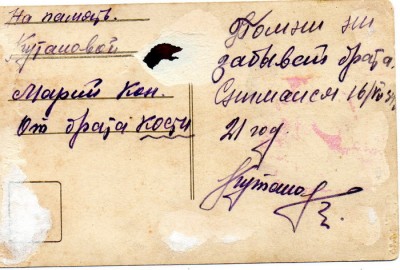 На память.
Кутановой
Марии Кон.
От брата Кости
Помни не
забывай брата.
Снимался 16/
21 год.
Кутанов